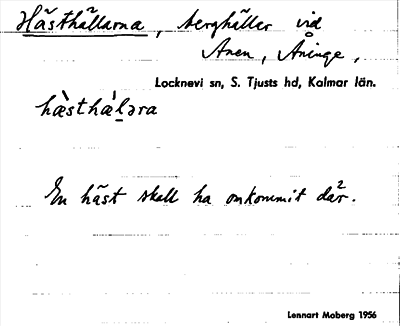 Hästhällarna, berghällar vid
Anen, Åninge,
Locknevi sn, S. Tjusts hd, Kalmar län.
hæ̀sthæ̀ḷəra
En häst skall ha omkommit där.
Lennart Moberg 1956